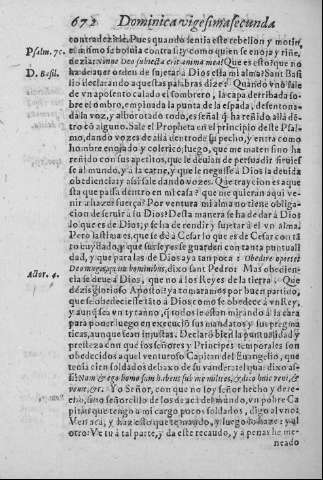 672 Dominica vigesimasecunda
Psalm. 7
contradezirle. Pues quando sentia este rebelion y motin,
el mismo se boluia contra si y como quien se enoja y riñe,
dezia: Nonne Deo subiecta erit anima mea? Que es esto que no
D. Basil.
ha de auer orden de sujetar à Dios esta mi alma? Sant Basi
lio declarando aquestas palabras dize: Quando vno sale
de vn aposento calado el sombrero, la capa derribada so-
bre el ombro, empinada la punta de la espada, desentona-
da la voz, y alborotado todo, es señal que ha reñido allà den
tro con alguno. Sale el Propheta en el principio deste Psal
mo, dando vozes de allà dentro de su pecho, y entra como
hombre enojado y colerico; luego, que me maten sino ha
reñido con sus apetitos, que le deuian de persuadir siruies
se al mundo, y a la carne, y que le negasse à Dios la deuida
obediencia; y assi sale dando vozes: Que traycion es aques
sta que passa dentro en mi casa? que me quieran aqui ve-
nir a hazer fuerça? Por ventura mi alma no tiene obliga-
cion de seruir a su Dios? Desta manera se ha de dar à Dios
lo que es de Dios, y se ha de rendir y sujetar à el vn alma.
Pero lastima es, que se dè à Cesar lo que es de Cesar con
tanto cuydado, y que sus leyes se guarden con tanta puntuali
dad, y que para las de Dios aya tan poca: Obedire oportet
Deo magis, quàm hominibus, dixo sant Pedro: Mas obedien-
Actor. 4.
cia se deue à Dios, que no a los Reyes de la tierra. Que
dezis glorioso Apostol? ya tomaramos por buen partido,
que se obedeciesse tãto à Dios como se obedece à vn Rey,
y aunque sea vn tyranno, que todos le estan mirando à la cara
para poner luego en execucion sus mandatos y sus pregma
ticas, aunque sean injustas. Declarò bien la puntualidad y
presteza con que los señores y Principes temporales son
obedecidos aquel venturoso Capitan del Euangelio, que
tenia cien soldados debaxo de su vandera: el qual dixo as-
si: Nam &amp; ego homo sum habens sub me milites, &amp; dico huic veni, &amp;
venit, &amp;c. Yo Señor, con que no soy señor hecho y dere-
cho, sino señorcillo de los de acà del mundo, vn pobre Ca
pitan que tengo a mi cargo pocos soldados, digo al vno:
Ven acà, y haz esto que te mando, y luego lo haze: y al
otro: Ve tu à tal parte, y da este recaudo, y à penas he me
neado